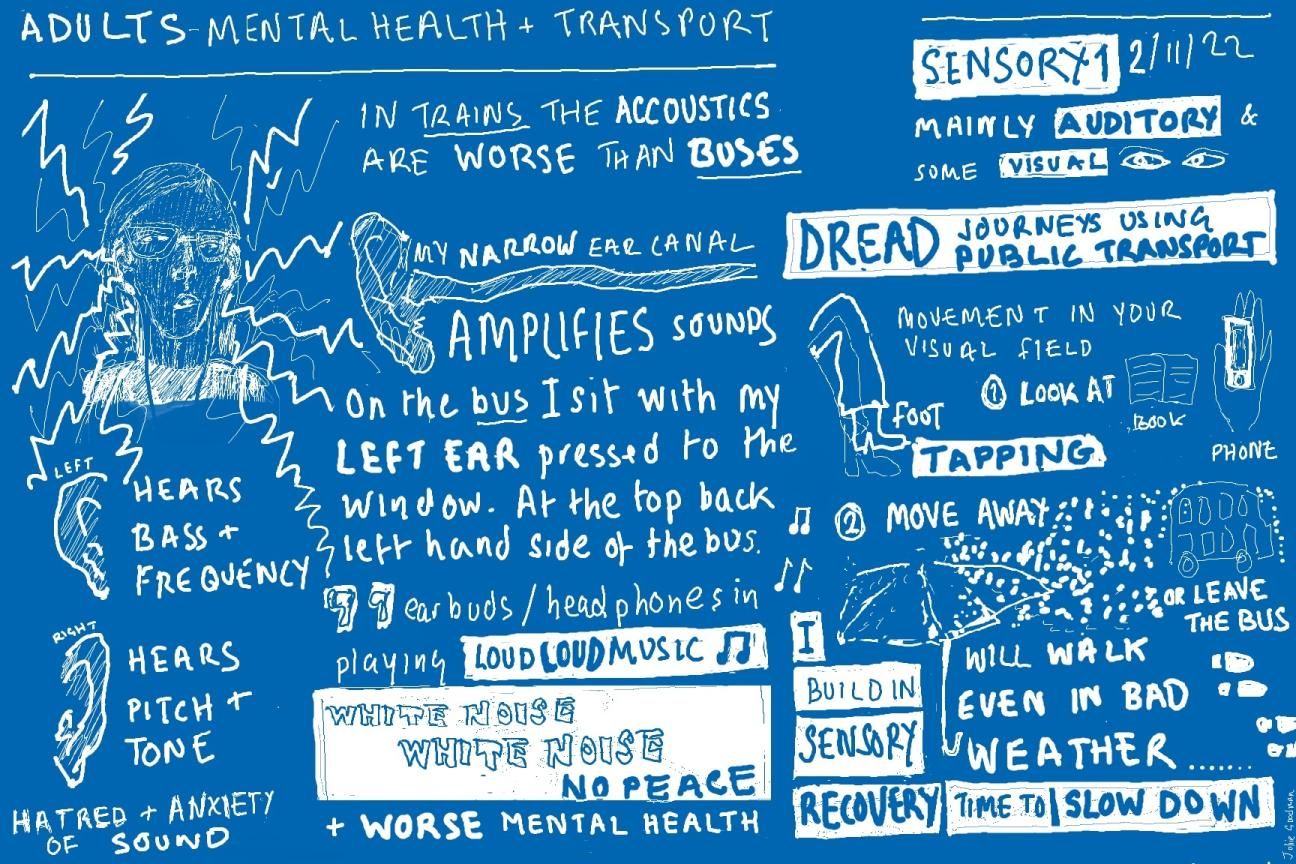 ADULTS - MENTAL HEALTH + TRANSPORT
SENSORY 1 2/11/22
MAINLY AUDITORY &
SOME VISUAL
IN TRAINS THE ACCOUSTICS
ARE WORSE THAN BUSES
MY NARROW EAR CANAL
AMPLIFIES SOUNDS
On the bus I sit with my
LEFT EAR pressed to the
window. At the top back
left hand side of the bus.
ear buds / headphones in
playing LOUD LOUD MUSIC
WHITE NOISE
WHITE NOISE
NO PEACE
+ WORSE MENTAL HEALTH
LEFT
HEARS
BASS +
FREQUENCY
RIGHT
HEARS
PITCH +
TONE
HATRED + ANXIETY
OF SOUND
DREAD JOURNEYS USING
PUBLIC TRANSPORT
MOVEMENT IN YOUR
VISUAL FIELD
① LOOK AT
BOOK
PHONE
FOOT
TAPPING
② MOVE AWAY
OR LEAVE
THE BUS
I
WILL WALK
EVEN IN BAD
WEATHER.......
BUILD IN
SENSORY
RECOVERY TIME TO SLOW DOWN
Jolie Goodman